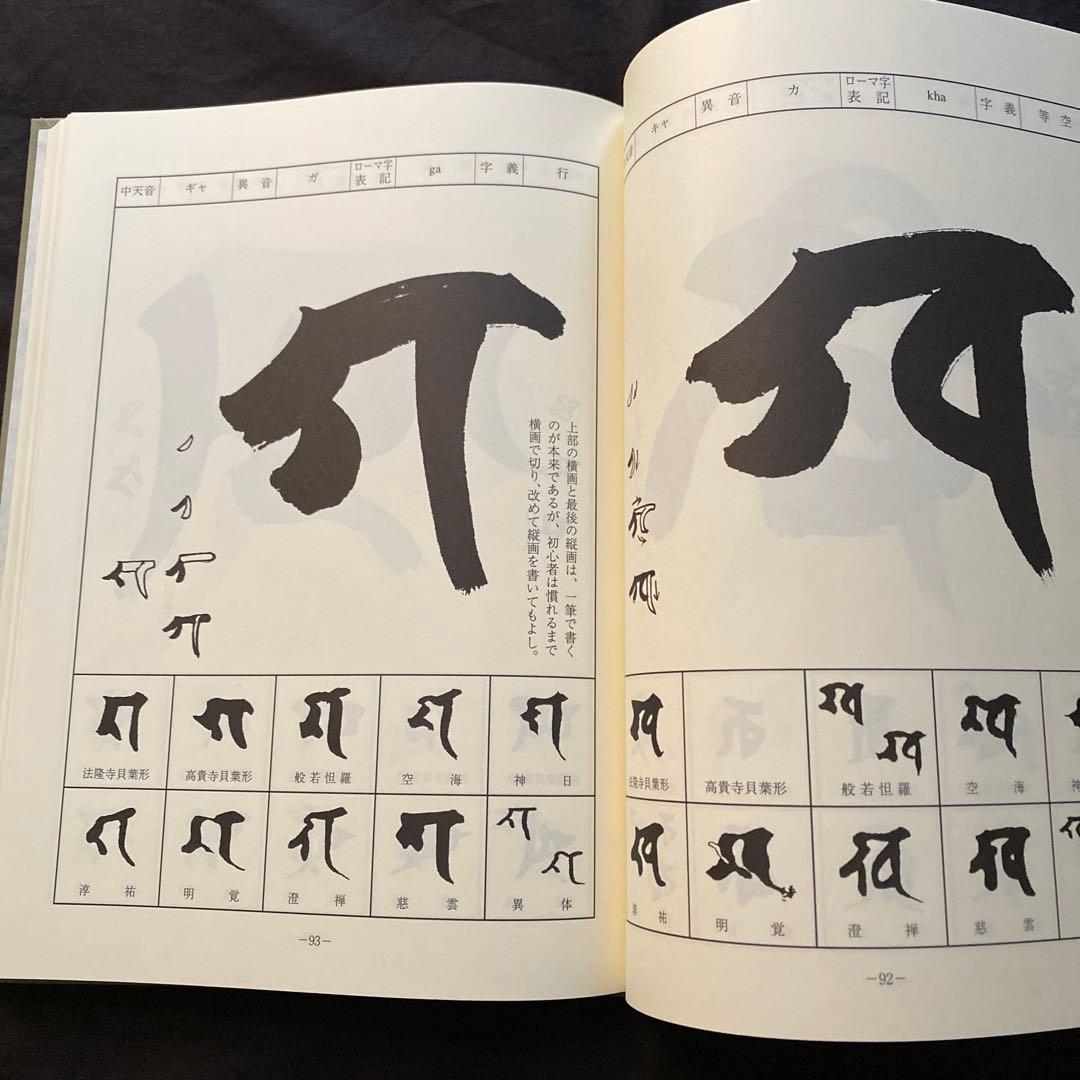 キャ 異音 カ ローマ字表記 kha 字義 等空
𑖏
法隆寺貝葉形 高貴寺貝葉形 般若怛羅 空海 神
淳祐 明覚 澄禅 慈雲
―92―
中天音 ギャ 異音 ガ ローマ字表記 ga 字義 行
𑖐
上部の横画と最後の縦画は、一筆で書く
のが本来であるが、初心者は慣れるまで
横画で切り、改めて縦画を書いてもよし。
法隆寺貝葉形 高貴寺貝葉形 般若怛羅 空海 神日
淳祐 明覚 澄禅 慈雲 異体
―93―